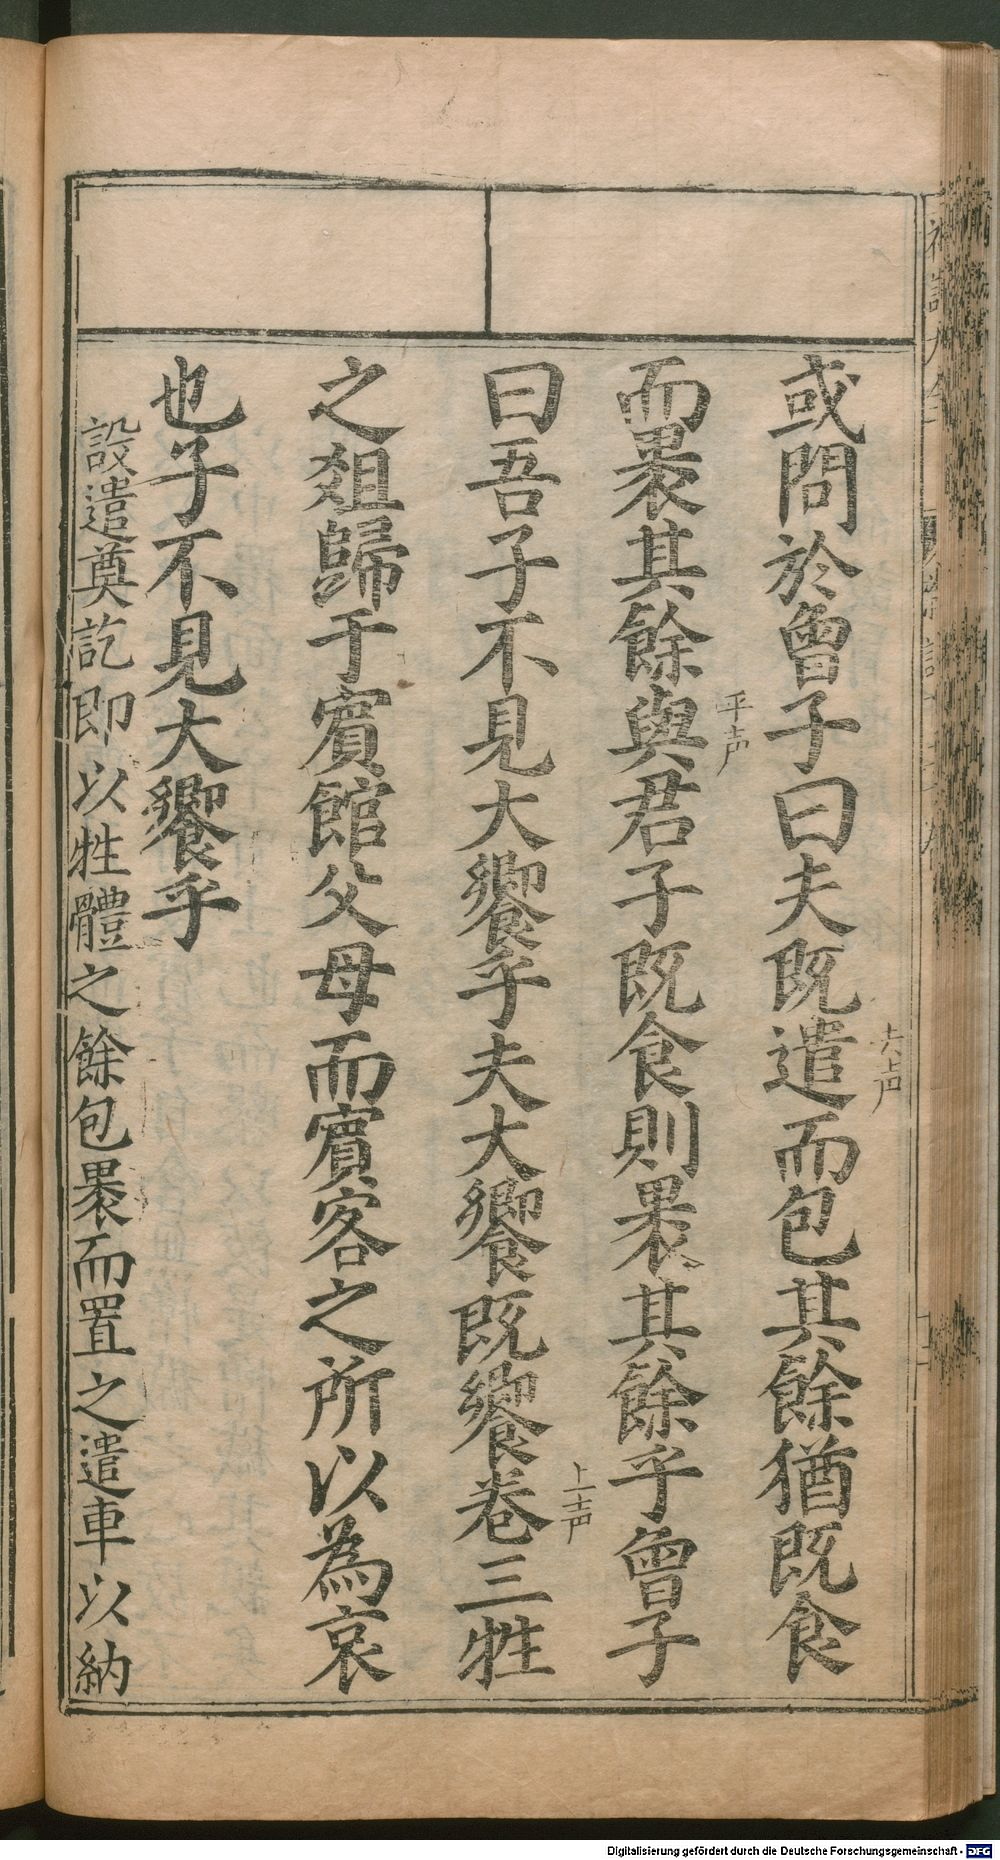 或問於曾子曰夫既遣而包其餘猶既食
去声
而裹其餘與君子既食則裹其餘乎曾子
平声
曰吾子不見大饗乎夫大饗既饗卷三牲
上声
之俎歸于賓館父母而賓客之所以為哀
也子不見大饗乎
設遣奠訖即以牲體之餘包裹而置之遣車以納
Digitalisierung gefördert durch die Deutsche Forschungsgemeinschaft - DFG